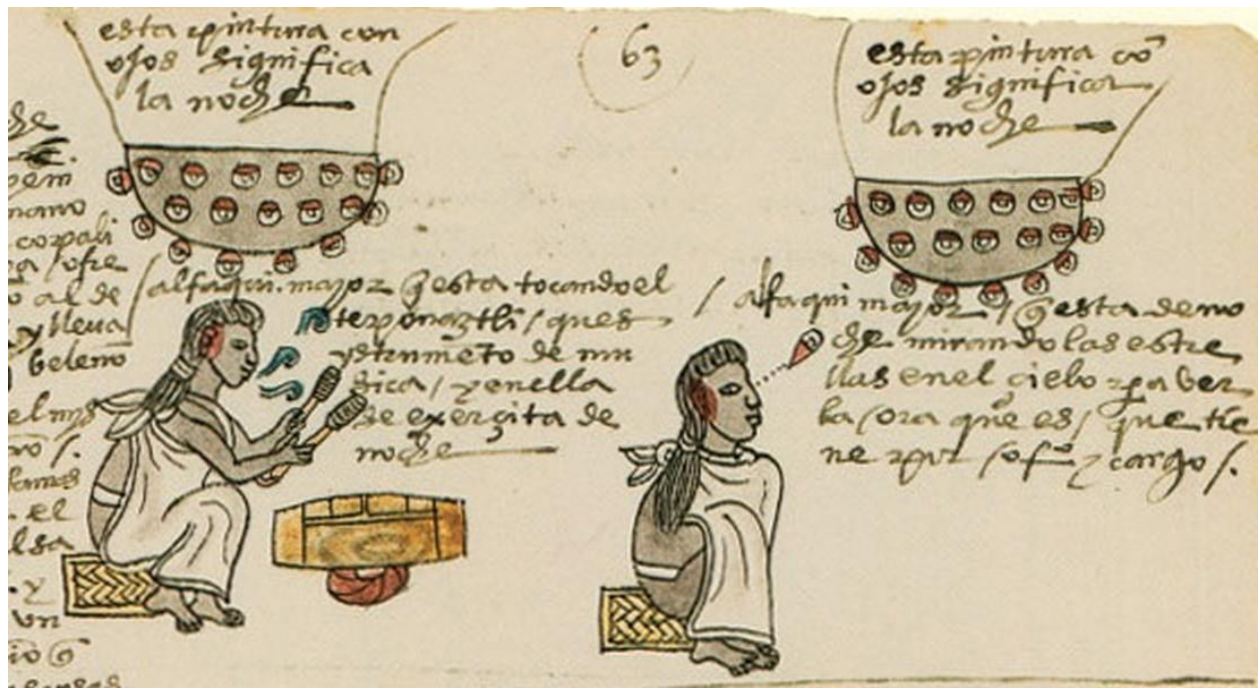 esta pintura con
ojos significa
la noche
63
esta pintura cō
ojos significa
la noche
alfaqui mayor q̄ esta tocando el
teponaztli / ques
ystrumēto de mu
sica / y en ella
se exerçita de
noche
/ alfaqui mayor / q̄ esta de no
che mirando las estre
llas en el cielo y pa ver
la ora que es / que tie
ne por / of° y cargo /.
che
mano
copali
/ ofre
al de
y lleva
beleño
el
el
y
un